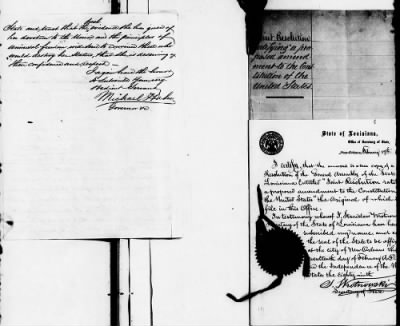 State and trust that the evidence she has given of
her devotion to the Union and the principles of
universal freedom will tend to convince those who
their confidence and respect
I again have the honor
Obedient Servant
Michael Hahn
Governor &c
Joint Resolution
ratifying a pro
posed amend
ment to the Con
stitution of the
United States.
State of Louisiana,
Office of Secretary of State,
New Orleans, February
I certify, that the annexed is a true copy of a
Resolution of the General Assembly of the State
Louisiana Entitled "Joint Resolution rati
a proposed amendment to the Constitution
the United States" the Original of which
file in this Office.
In testimony whereof I, Stanislas Wrotnow
etary of the State of Louisiana have here
subscribed my name, and
the seal of the State to be affix
at the city of New Orleans the
enteenth day of February A.D.
and the Independence of the U
States the eighty ninth
S. Wrotnowski
Secretary of State